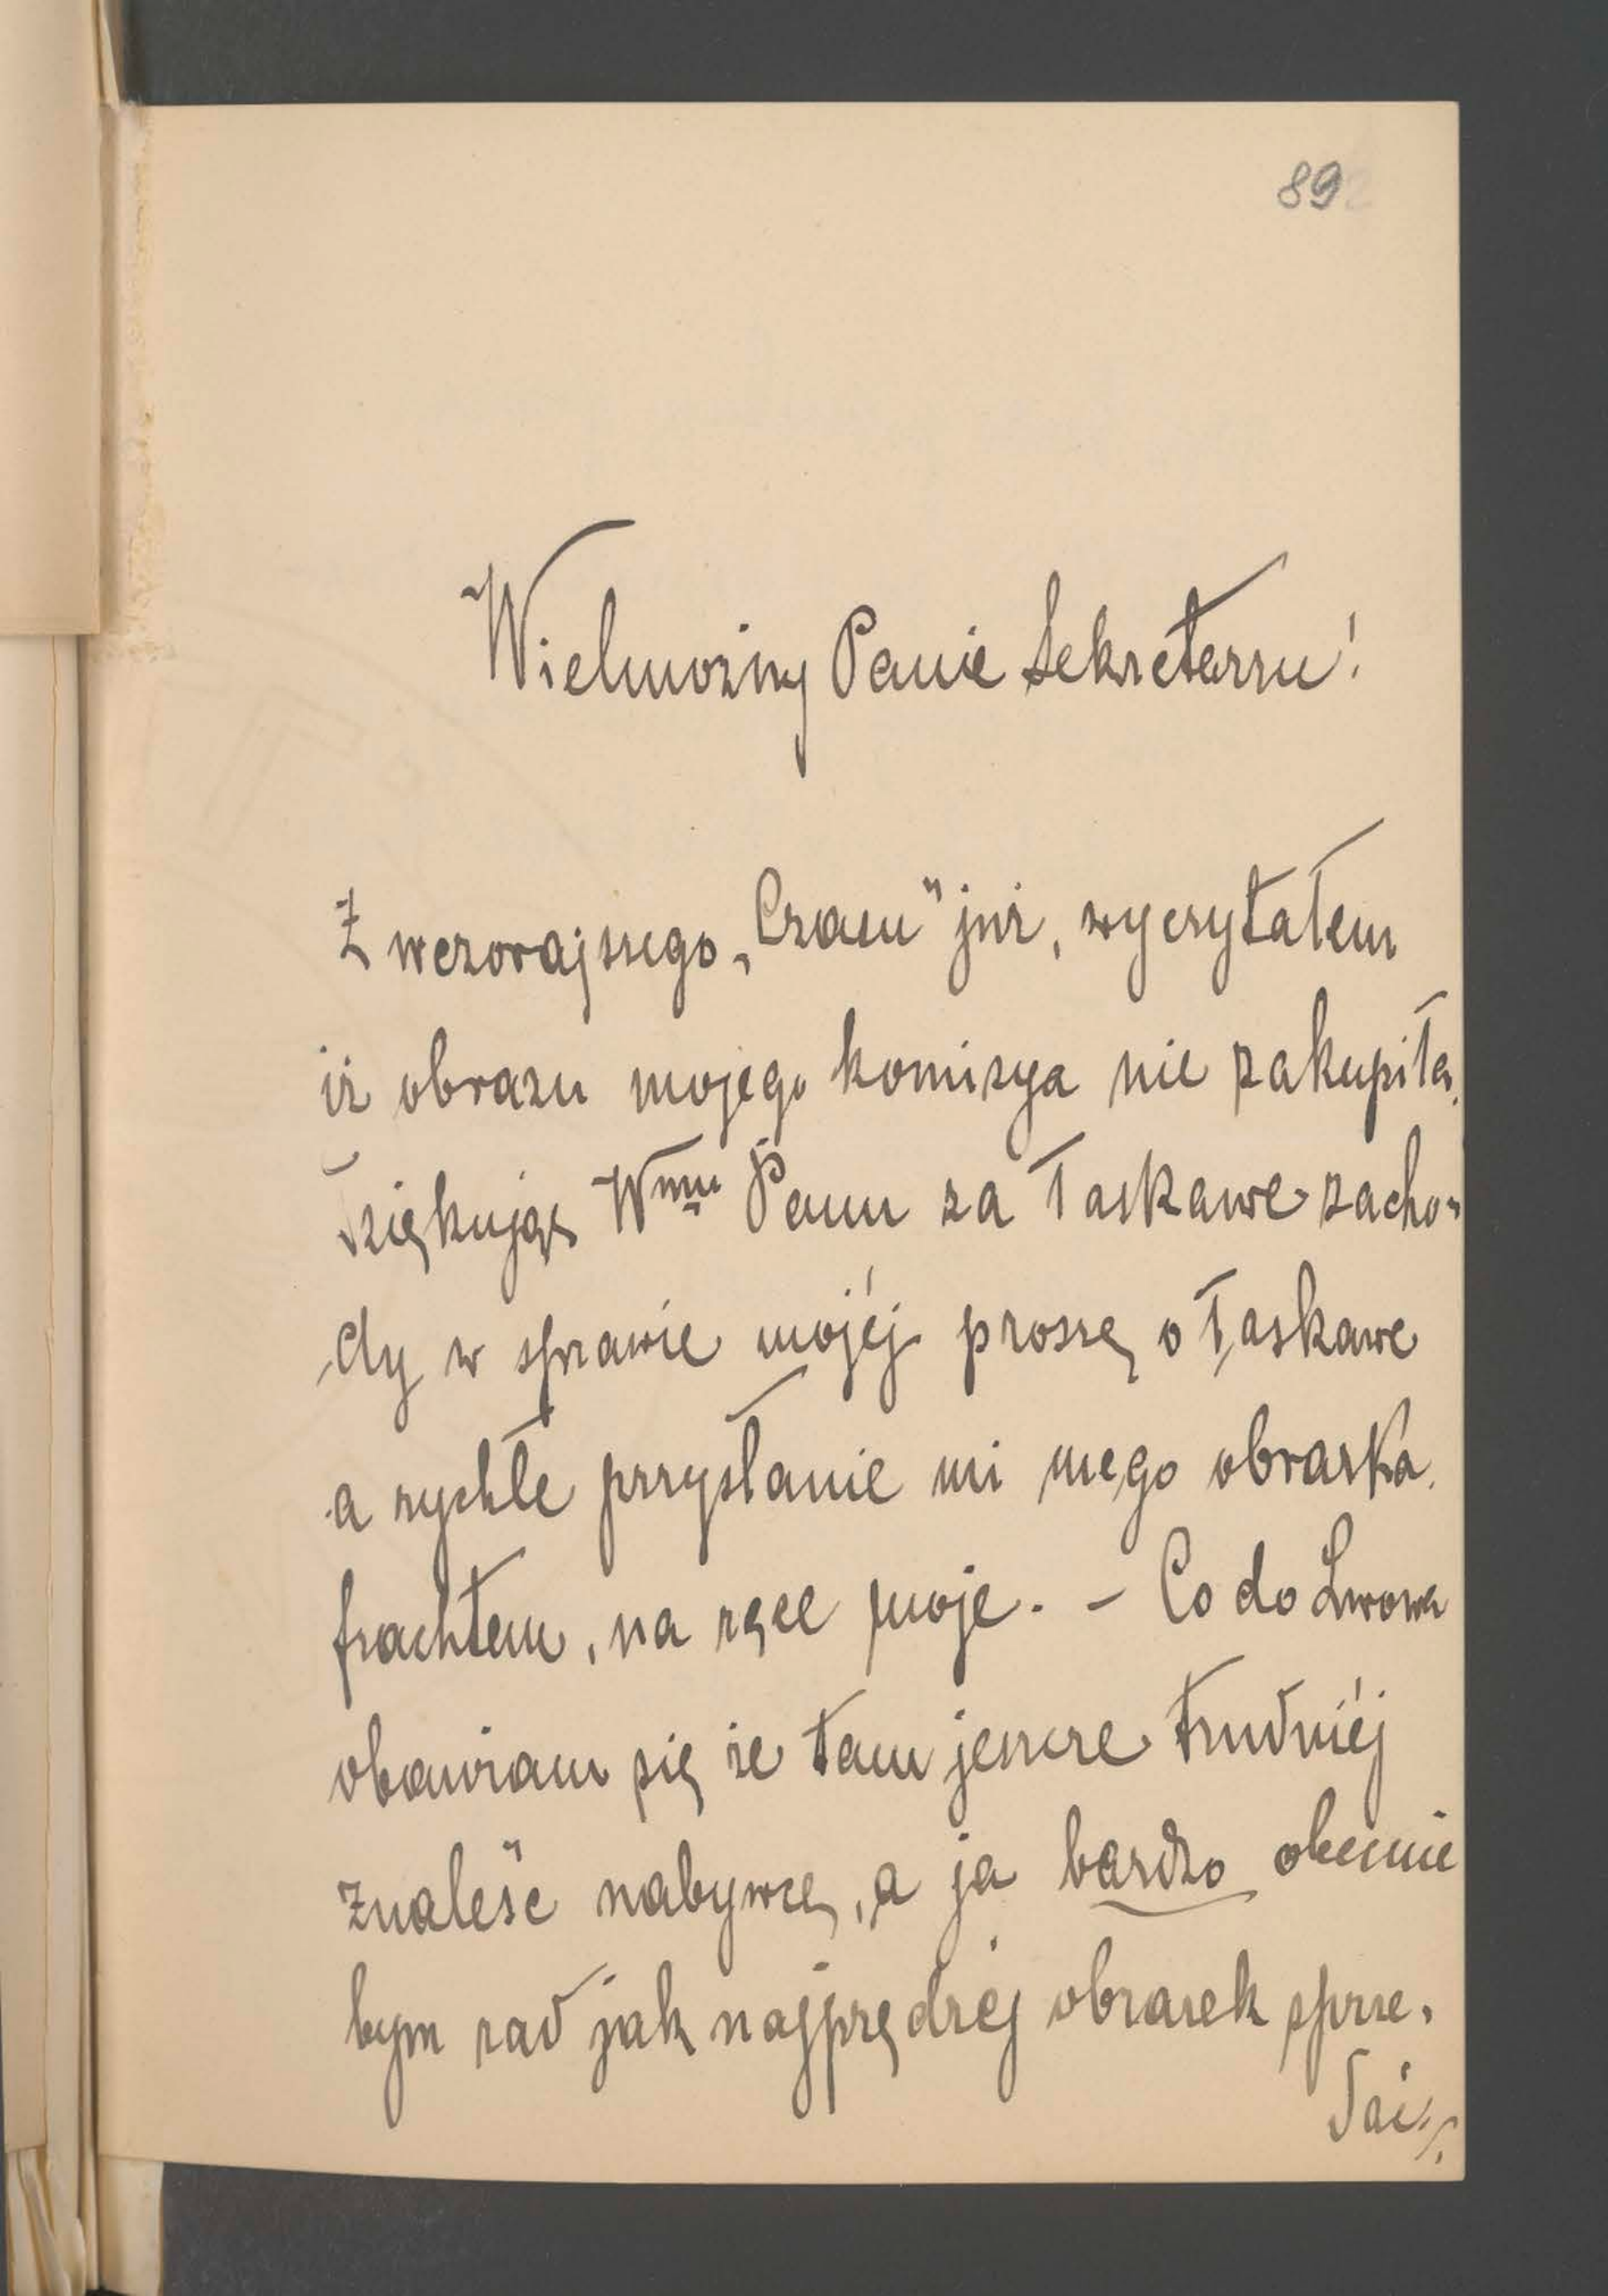 89
Wielmożny Panie Sekretarzu!
Z wczorajszego „Czasu" już, wyczytałem
iż obrazu mojego komisya nie zakupiła.
Dziękując Wmu Panu za łaskawe zacho-
dy w sprawie mojéj proszę o łaskawe
a rychłe przysłanie mi mego obrazka
frachtem, na ręce moje. – Co do Lwowa
obawiam się że tam jeszcze trudniéj
znaleść nabywcę, a ja bardzo obecnie
bym rad jak najprędzéj obrazek sprze-
dać,